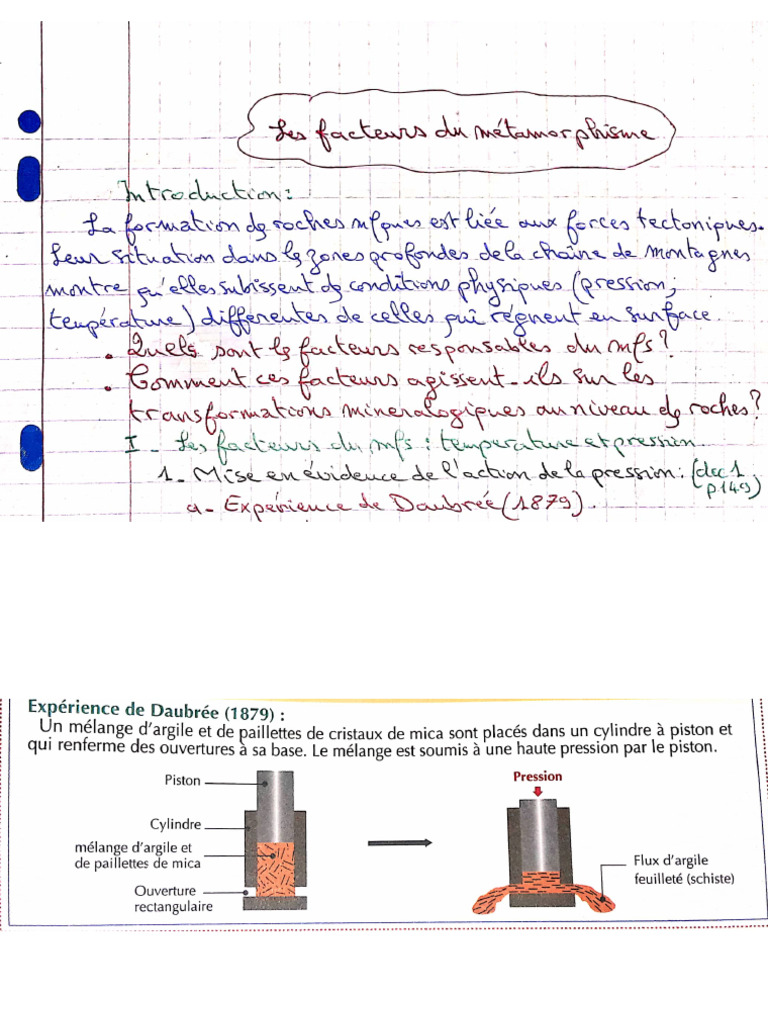 Les facteurs du métamorphisme
Introduction:
La formation ds roches mfques est liée aux forces tectoniques.
Leur situation dans ls zones profondes de la chaîne de montagnes
montre qu'elles subissent ds conditions physiques (pression,
température) differentes de celles qui régnent en surface.
. Quels sont ls facteurs responsables du mfs?
. Comment ces facteurs agissent-ils sur les
transformations mineralogiques au niveau ds roches?
I - Les facteurs du mfs : temperature et pression.
1 - Mise en évidence de l'action de la pression: (doc 1
p.149)
a - Expérience de Daubrée (1879).
Expérience de Daubrée (1879) :
Un mélange d'argile et de paillettes de cristaux de mica sont placés dans un cylindre à piston et
qui renferme des ouvertures à sa base. Le mélange est soumis à une haute pression par le piston.
Piston
Cylindre
mélange d'argile et
de paillettes de mica
Ouverture
rectangulaire
Pression
Flux d'argile
feuilleté (schiste)